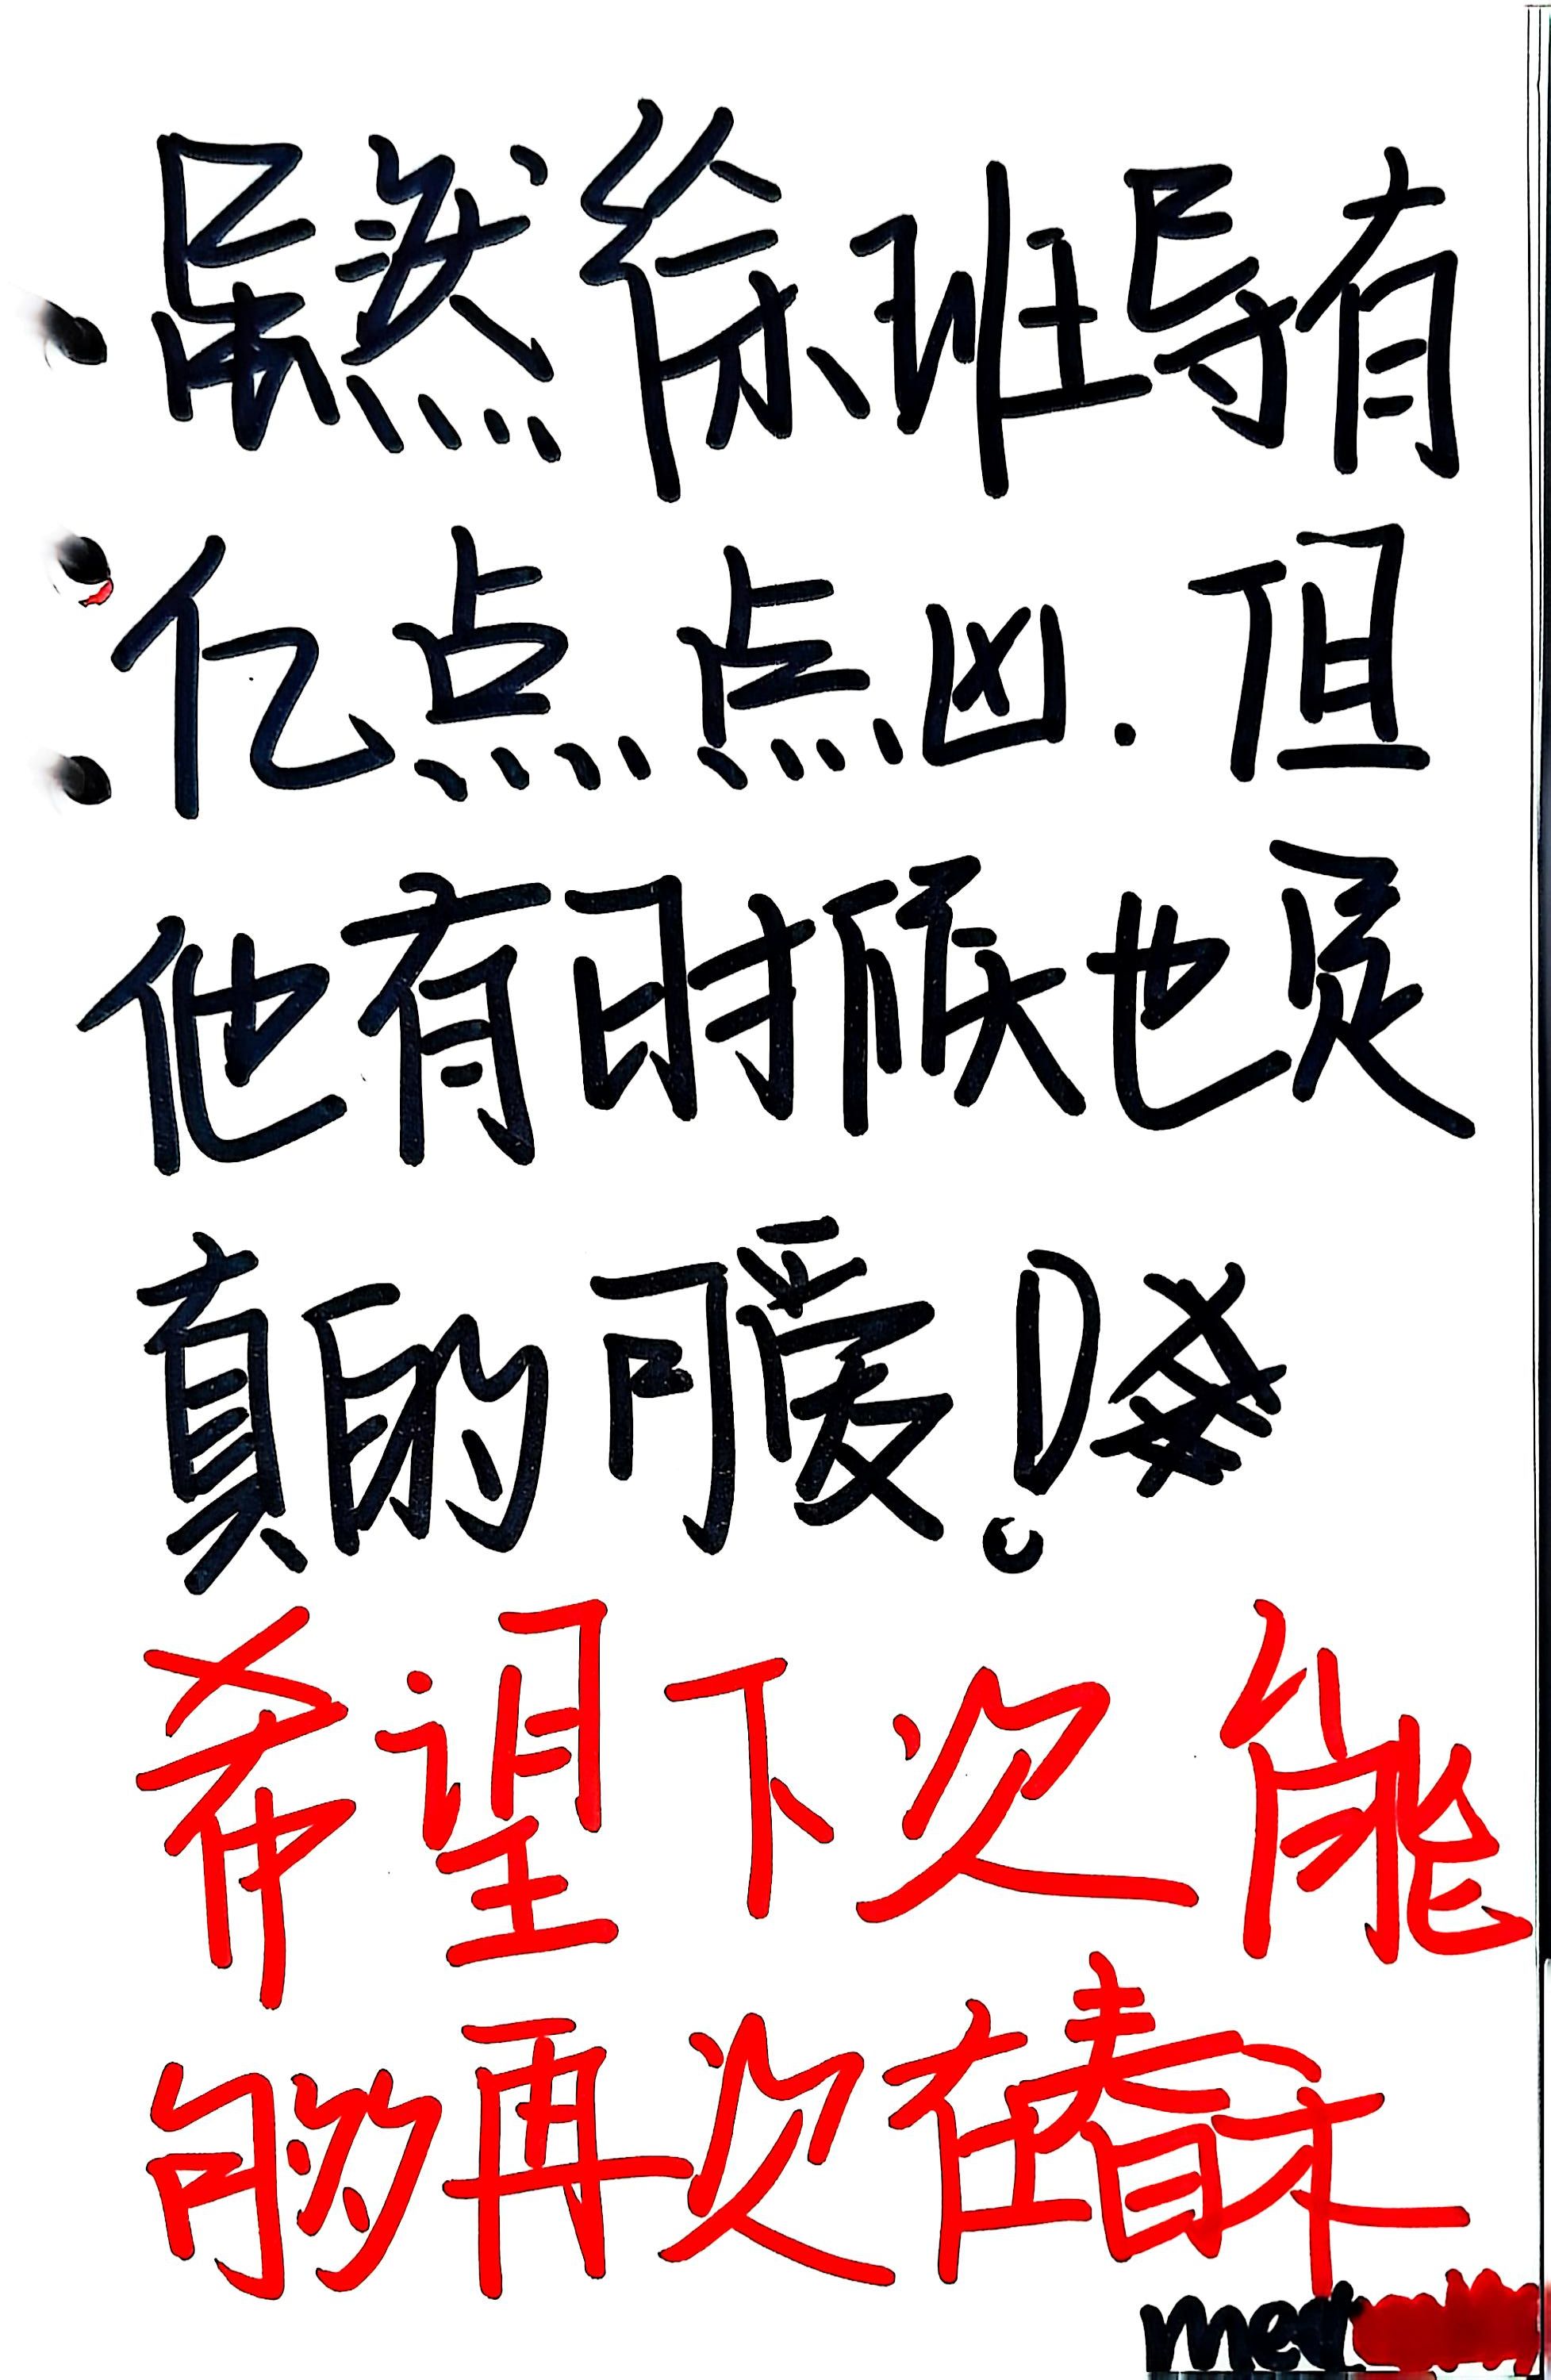 虽然徐班导有
亿点点凶.但
他有时候也是
真的可爱!
希望下次能
够再次在春禾